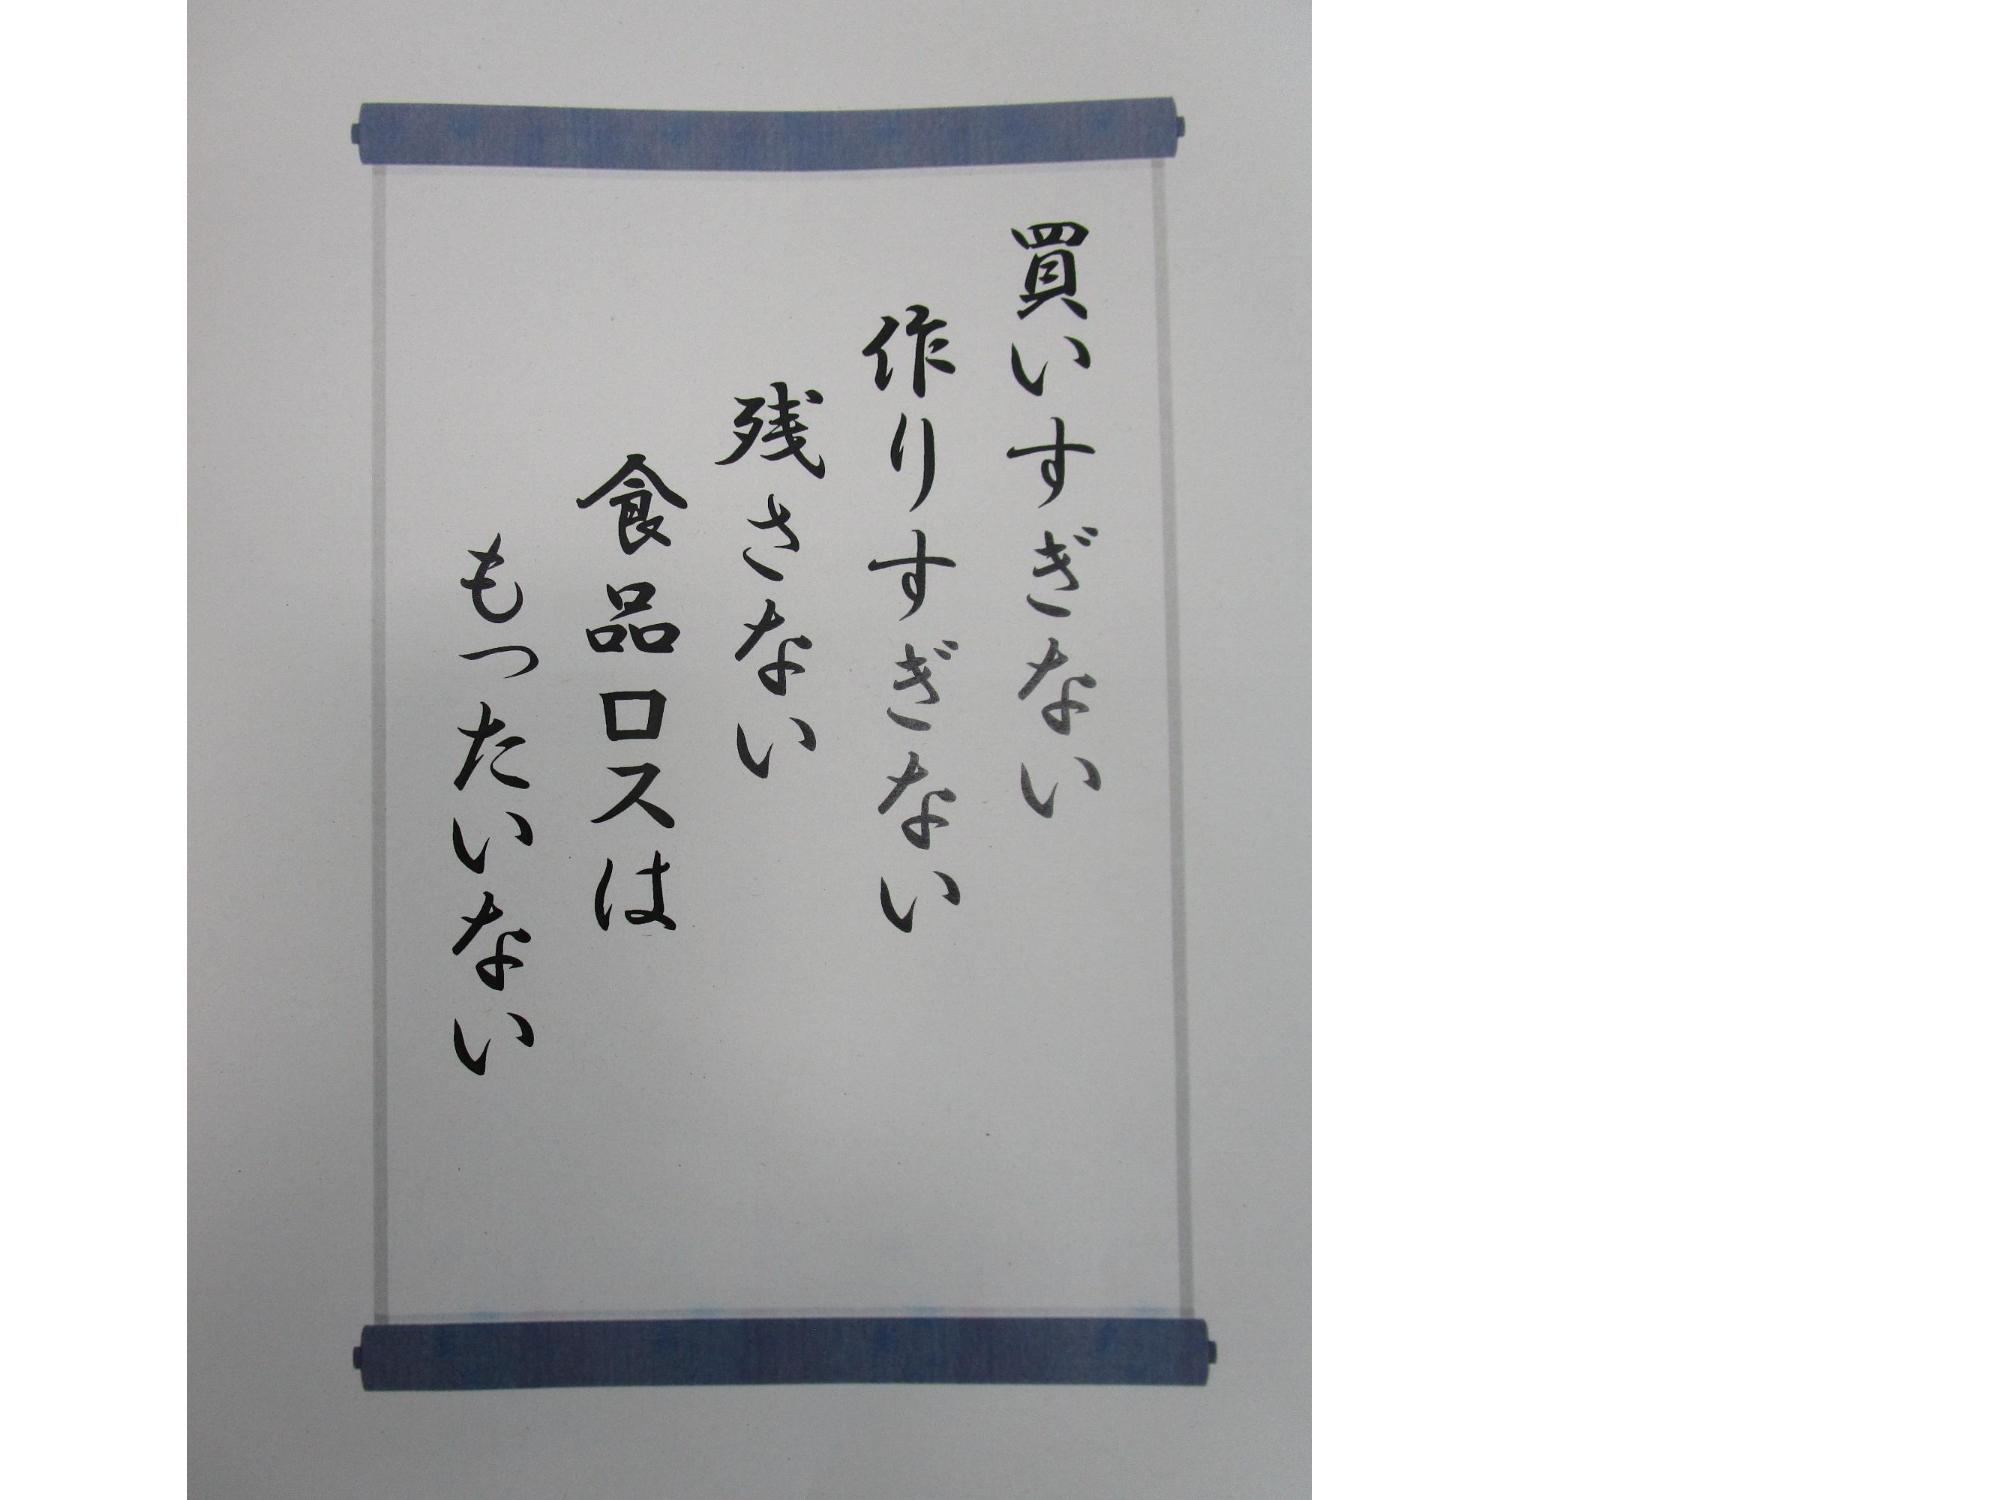 買いすぎない
作りすぎない
残さない
食品ロスは
もったいない